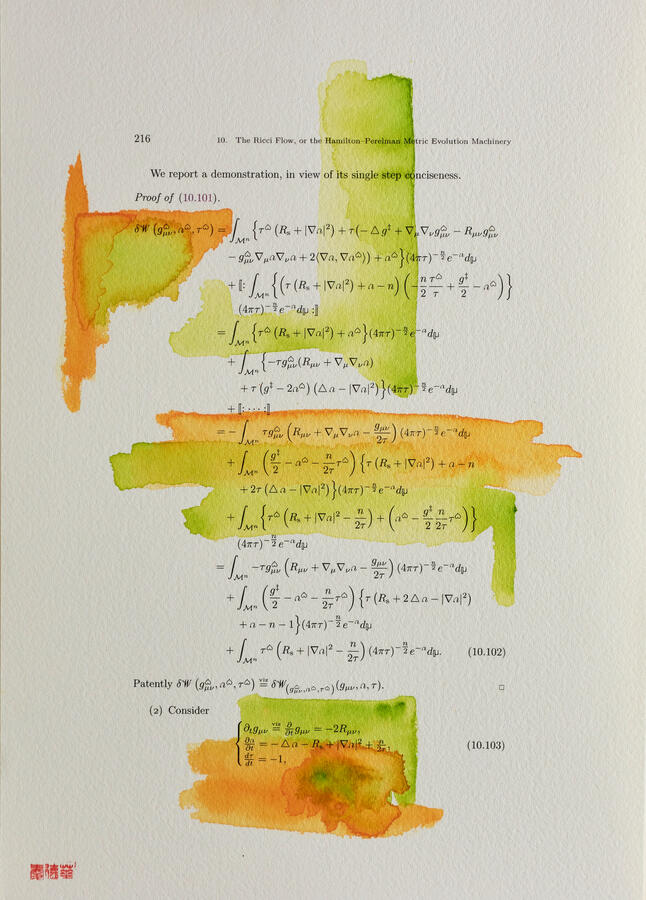 216 10. The Ricci Flow, or the Hamilton–Perelman Metric Evolution Machinery
We report a demonstration, in view of its single step conciseness.
Proof of (10.101).
δ𝒲 (g^♎_μν, a^♎, τ^♎) = ∫_ℳⁿ {τ^♎ (R_s + |∇a|²) + τ(−△g^‡ + ∇_μ∇_ν g^♎_μν − R_μν g^♎_μν
− g^♎_μν ∇_μ a∇_ν a + 2⟨∇a, ∇a^♎⟩) + a^♎}(4πτ)^{−n/2} e^{−a} dμ
+ ⟦: ∫_ℳⁿ {(τ (R_s + |∇a|²) + a − n) (−n/2 τ^♎/τ + g^‡/2 − a^♎)}
(4πτ)^{−n/2} e^{−a} dμ :⟧
= ∫_ℳⁿ {τ^♎ (R_s + |∇a|²) + a^♎}(4πτ)^{−n/2} e^{−a} dμ
+ ∫_ℳⁿ {−τg^♎_μν (R_μν + ∇_μ∇_ν a)
+ τ (g^‡ − 2a^♎) (△a − |∇a|²)}(4πτ)^{−n/2} e^{−a} dμ
+ ⟦: · · · :⟧
= − ∫_ℳⁿ τg^♎_μν (R_μν + ∇_μ∇_ν a − g_μν/2τ) (4πτ)^{−n/2} e^{−a} dμ
+ ∫_ℳⁿ (g^‡/2 − a^♎ − n/2τ τ^♎) {τ (R_s + |∇a|²) + a − n
+ 2τ (△a − |∇a|²)}(4πτ)^{−n/2} e^{−a} dμ
+ ∫_ℳⁿ {τ^♎ (R_s + |∇a|² − n/2τ) + (a^♎ − g^‡/2 n/2τ τ^♎)}
(4πτ)^{−n/2} e^{−a} dμ
= ∫_ℳⁿ −τg^♎_μν (R_μν + ∇_μ∇_ν a − g_μν/2τ) (4πτ)^{−n/2} e^{−a} dμ
+ ∫_ℳⁿ (g^‡/2 − a^♎ − n/2τ τ^♎) {τ (R_s + 2△a − |∇a|²)
+ a − n − 1}(4πτ)^{−n/2} e^{−a} dμ
+ ∫_ℳⁿ τ^♎ (R_s + |∇a|² − n/2τ) (4πτ)^{−n/2} e^{−a} dμ. (10.102)
Patently δ𝒲 (g^♎_μν, a^♎, τ^♎) =^viz δ𝒲_(g^♎_μν, a^♎, τ^♎) (g_μν, a, τ). □
(2) Consider
{∂_t g_μν =^viz ∂/∂t g_μν = −2R_μν,
∂a/∂t = −△a − R_s + |∇a|² + n/2τ, (10.103)
dτ/dt = −1,